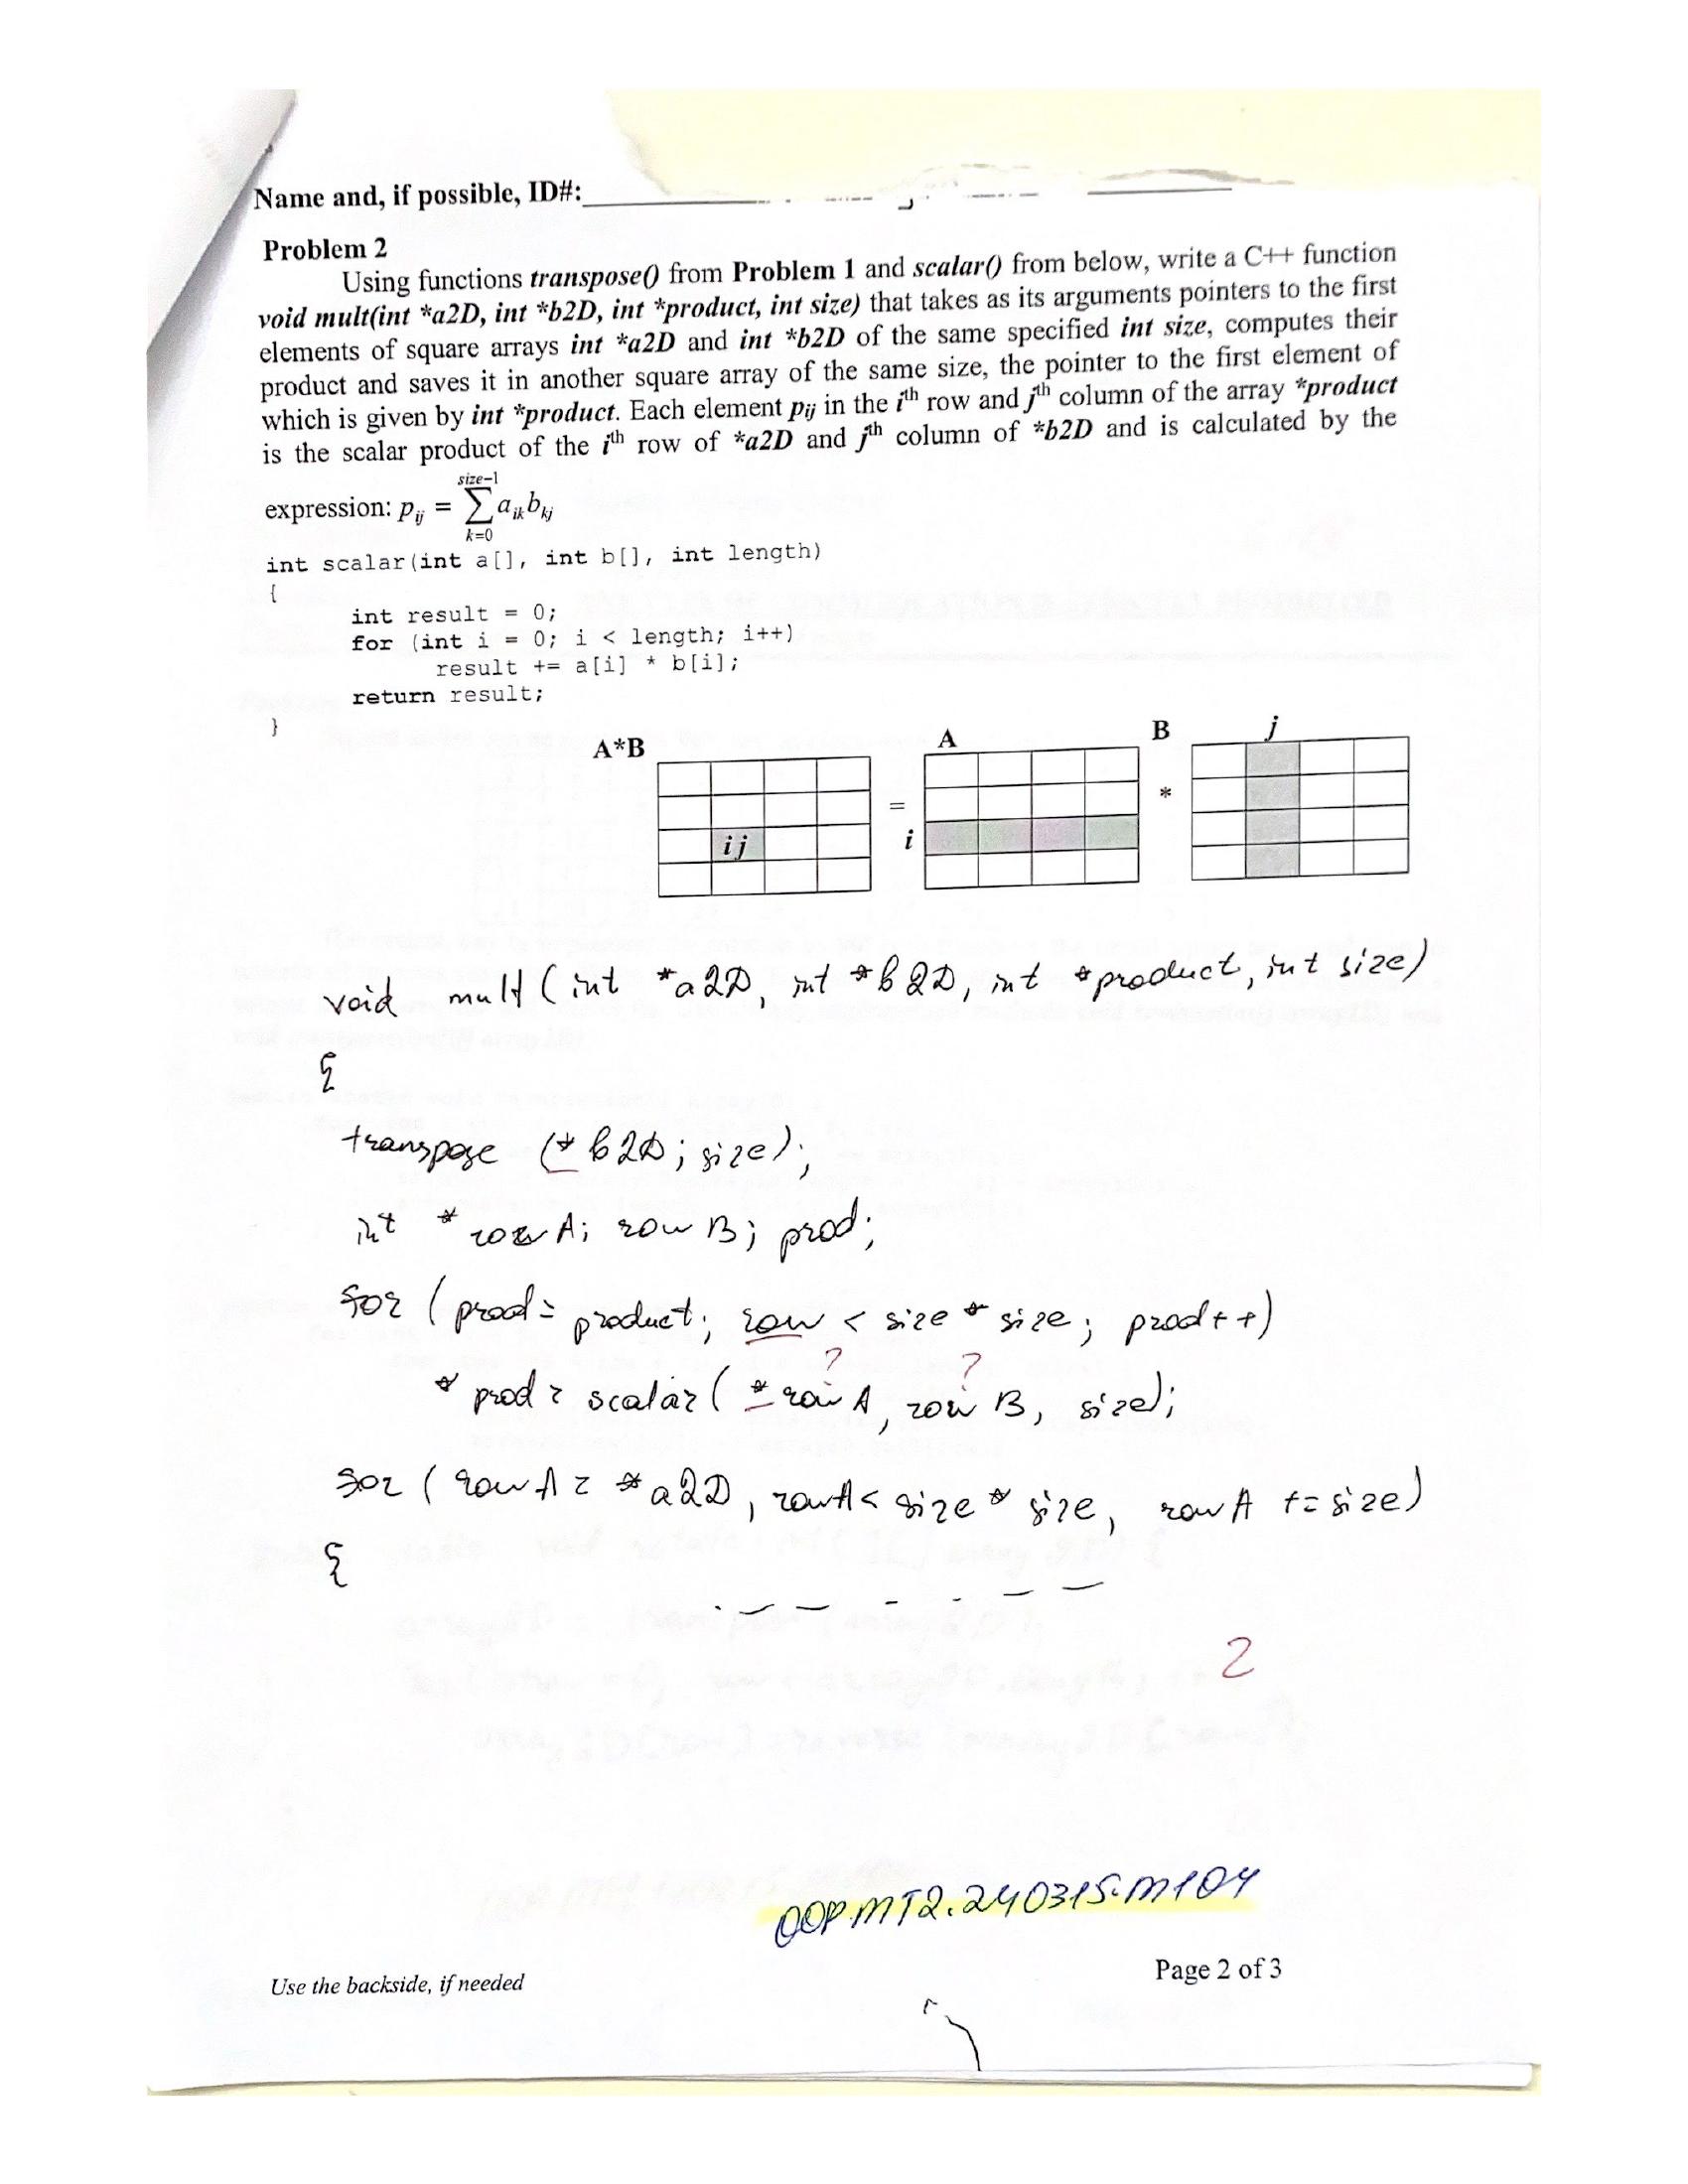 Name and, if possible, ID#:
Problem 2
Using functions transpose() from Problem 1 and scalar() from below, write a C++ function
void mult(int *a2D, int *b2D, int *product, int size) that takes as its arguments pointers to the first
elements of square arrays int *a2D and int *b2D of the same specified int size, computes their
product and saves it in another square array of the same size, the pointer to the first element of
which is given by int *product. Each element pij in the ith row and jth column of the array *product
is the scalar product of the ith row of *a2D and jth column of *b2D and is calculated by the
size-1
expression: pij = ∑ aik bkj
k=0
int scalar(int a[], int b[], int length)
{
int result = 0;
for (int i = 0; i < length; i++)
result += a[i] * b[i];
return result;
}
A*B A B j
= *
i j i
void mult (int *a2D, int *b2D, int *product, int size)
{
transpose (*b2D; size);
int *rowA; rowB; prod;
for (prod = product; row < size * size; prod++)
? ?
* prod = scalar (*rowA, rowB, size);
for (rowA = *a2D, rowA < size * size, rowA += size)
{
2
OOP.MT2.240315.M104
Use the backside, if needed
Page 2 of 3